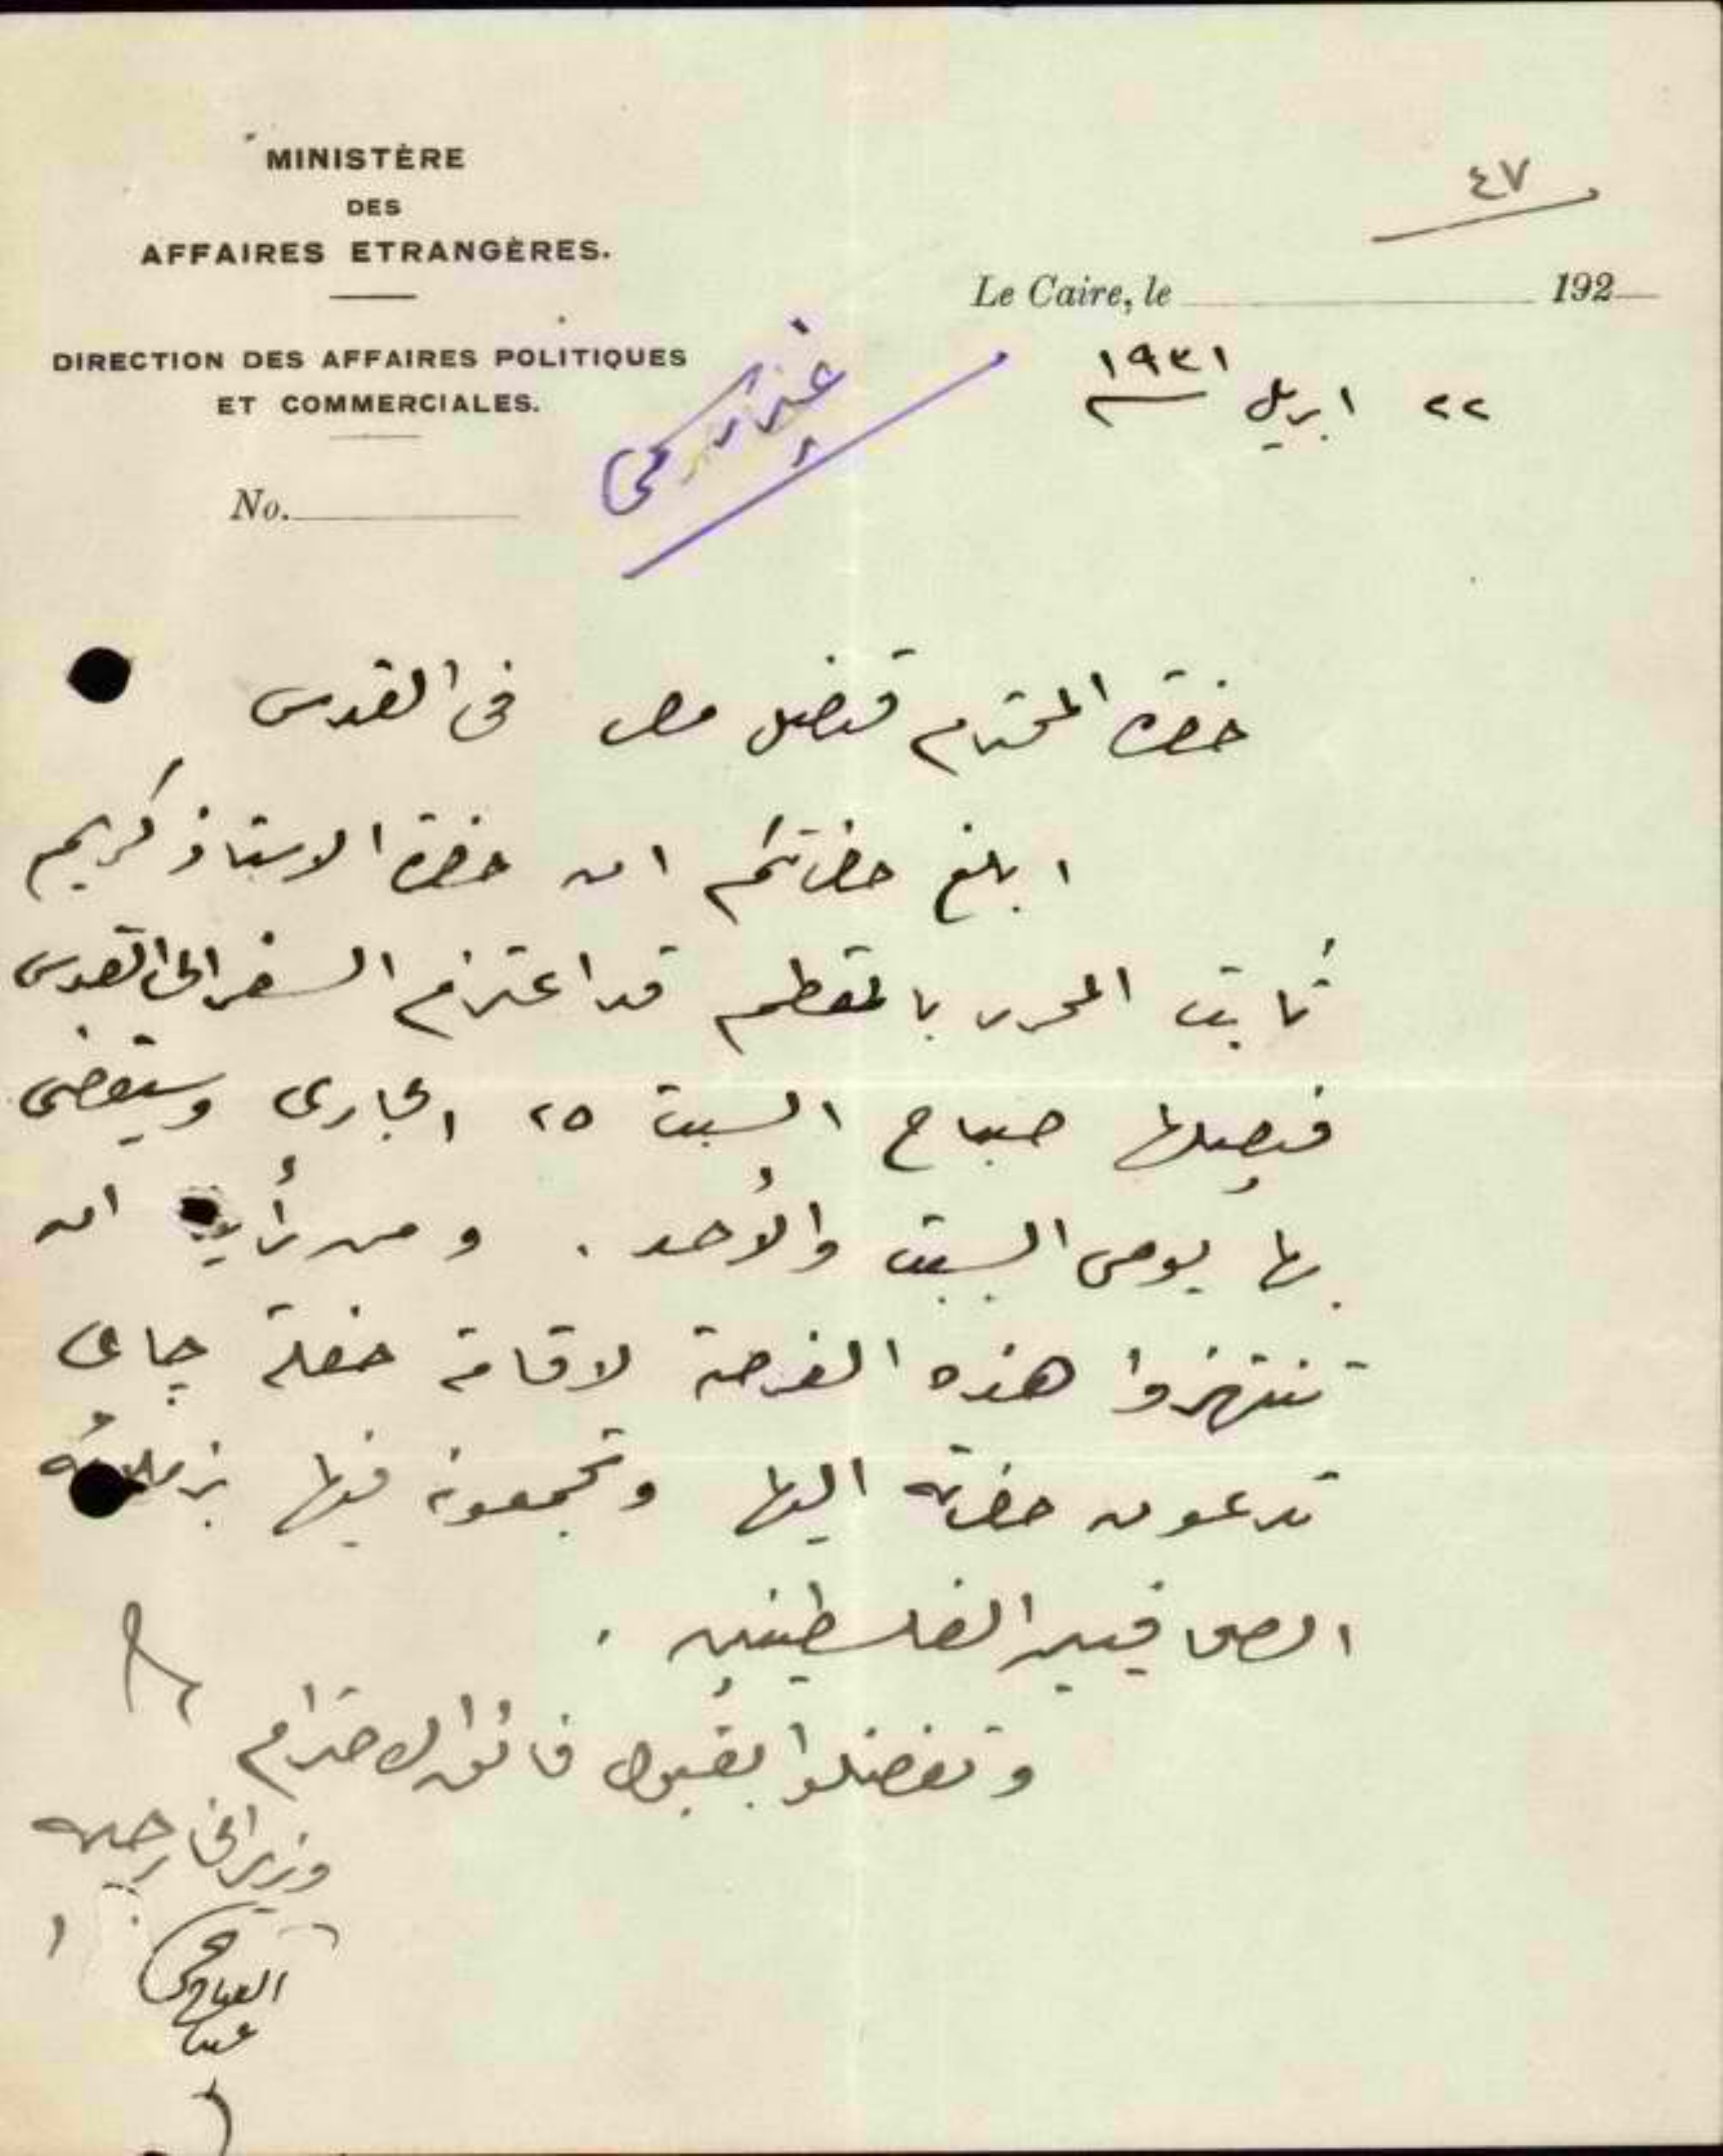 MINISTÈRE
DES
AFFAIRES ETRANGÈRES.
DIRECTION DES AFFAIRES POLITIQUES
ET COMMERCIALES.
No.
٤٧
Le Caire, le 192
٢٢ ابريل ١٩٣١
غير رسمى
حضرة المحترم قنصل مصر فى القدس
ابلغ حضرتكم ان حضرة الاستاذ كريم
ثابت المحرر بالمقطم قد اعتزم السفر الى القدس
فيصلها صباح السبت ٢٥ الجارى وسيقضى
بها يومى السبت والأحد . ومن رأيى ان
تنتهزوا هذه الفرصة لاقامة حفلة چاى
تدعون حضرته اليها وتجمعونه فيها بزملائه
الصحافيين الفلسطينيين .
وتفضلوا بقبول فائق الاحترام
وزير الخارجيه
عبد الفتاح يحيى